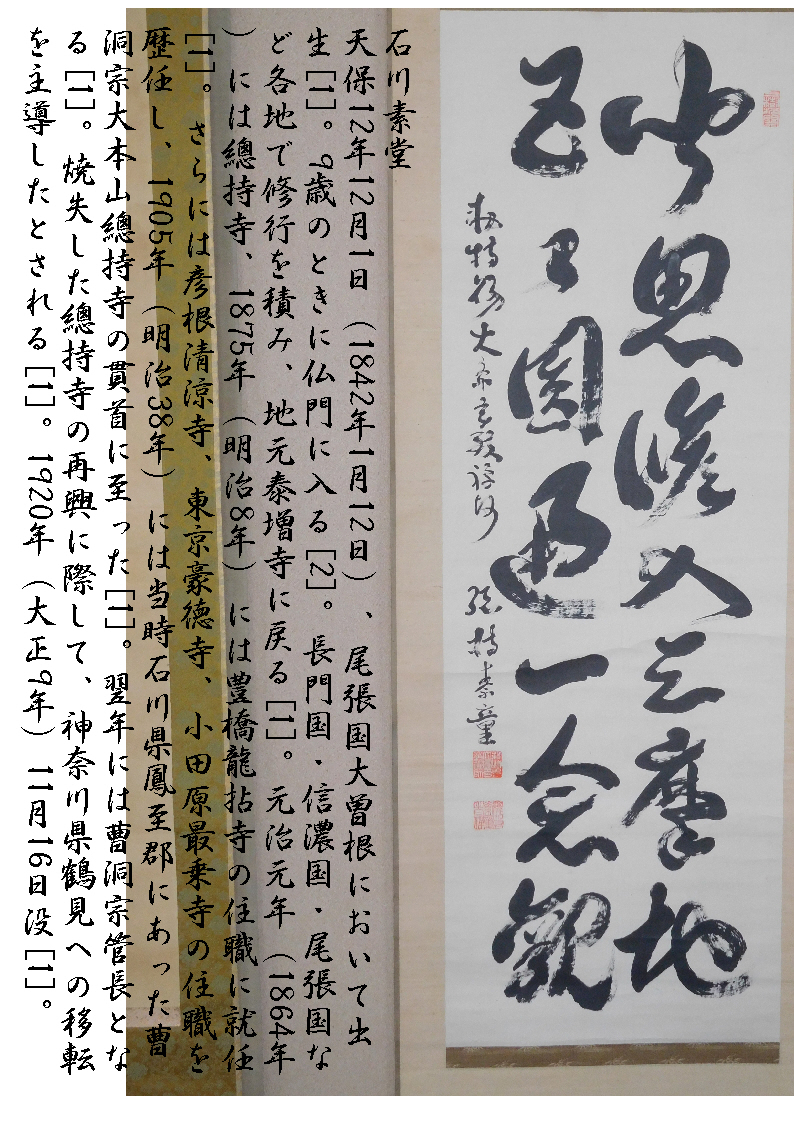 聞思脩入三摩地
圓通一念觀
勅特賜大圓玄致禅師 總持素童
石川素堂
天保12年12月1日（1842年1月12日）、尾張国大曽根において出
生[1]。9歳のときに仏門に入る[2]。長門国・信濃国・尾張国な
ど各地で修行を積み、地元泰増寺に戻る[1]。元治元年（1864年
）には總持寺、1875年（明治8年）には豊橋龍拈寺の住職に就任
[1]。さらには彦根清涼寺、東京豪徳寺、小田原最乗寺の住職を
歴任し、1905年（明治38年）には当時石川県鳳至郡にあった曹
洞宗大本山總持寺の貫首に至った[1]。翌年には曹洞宗管長とな
る[1]。焼失した總持寺の再興に際して、神奈川県鶴見への移転
を主導したとされる[1]。1920年（大正9年）11月16日没[1]。